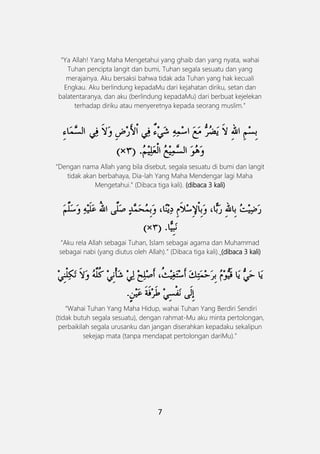 “Ya Allah! Yang Maha Mengetahui yang ghaib dan yang nyata, wahai
Tuhan pencipta langit dan bumi, Tuhan segala sesuatu dan yang
merajainya. Aku bersaksi bahwa tidak ada Tuhan yang hak kecuali
Engkau. Aku berlindung kepadaMu dari kejahatan diriku, setan dan
balatentaranya, dan aku (berlindung kepadaMu) dari berbuat kejelekan
terhadap diriku atau menyeretnya kepada seorang muslim.”
بِسْمِ اللهِ لاَ يَضُرُّ مَعَ اسْمِهِ شَيْءٌ فِي اْلأَرْضِ وَلاَ فِي السَّمَاءِ
وَهُوَ السَّمِيْعُ الْعَلِيْمُ. (×٣)
“Dengan nama Allah yang bila disebut, segala sesuatu di bumi dan langit
tidak akan berbahaya, Dia-lah Yang Maha Mendengar lagi Maha
Mengetahui.” (Dibaca tiga kali). (dibaca 3 kali)
رَضِيْتُ بِاللهِ رَبًّا، وَبِاْلإِسْلاَمِ دِيْنًا، وَبِمُحَمَّدٍ صَلَّى اللهُ عَلَيْهِ وَسَلَّمَ
نَبِيًّا. (×٣)
“Aku rela Allah sebagai Tuhan, Islam sebagai agama dan Muhammad
sebagai nabi (yang diutus oleh Allah).” (Dibaca tiga kali). (dibaca 3 kali)
يَا حَيُّ يَا قَيُّوْمُ بِرَحْمَتِكَ أَسْتَغِيْثُ، أَصْلِحْ لِيْ شَأْنِيْ كُلَّهُ وَلاَ تَكِلْنِيْ
إِلَى نَفْسِيْ طَرْفَةَ عَيْنٍ.
“Wahai Tuhan Yang Maha Hidup, wahai Tuhan Yang Berdiri Sendiri
(tidak butuh segala sesuatu), dengan rahmat-Mu aku minta pertolongan,
perbaikilah segala urusanku dan jangan diserahkan kepadaku sekalipun
sekejap mata (tanpa mendapat pertolongan dariMu).”
7